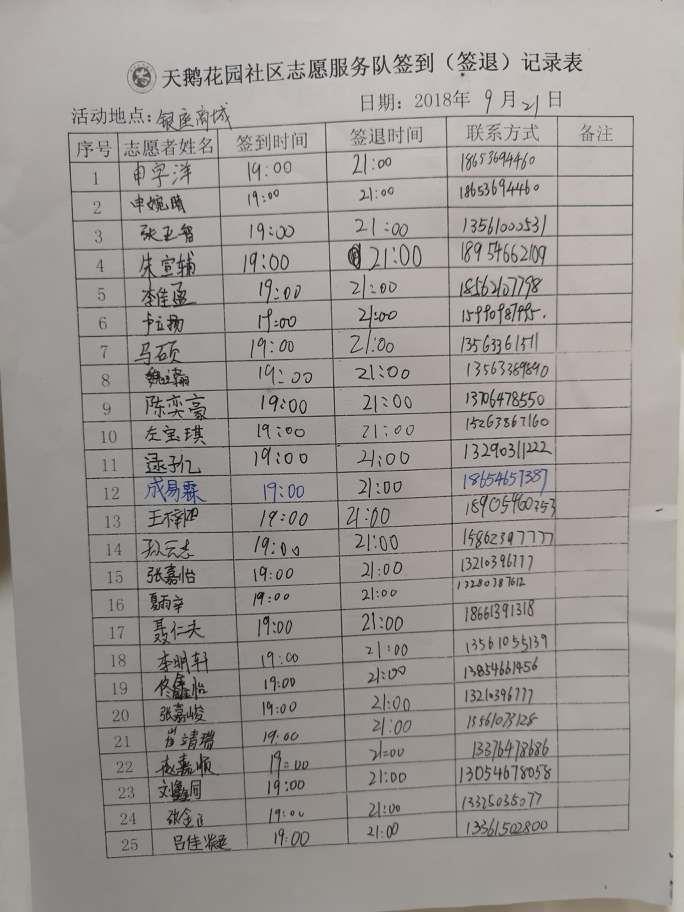 天鹅花园社区志愿服务队签到（签退）记录表
活动地点：银座商城 日期：2018年 9月21日
序号 志愿者姓名 签到时间 签退时间 联系方式 备注
1 申宇洋 19:00 21:00 18653694460
2 申婉晴 19:00 21:00 18653694460
3 张正智 19:00 21:00 13561000531
4 朱宣辅 19:00 21:00 18954662109
5 李佳孟 19:00 21:00 18562107798
6 19:00 21:00
7 马硕 19:00 21:00 13563361511
8 19:00 21:00 13563369890
9 陈奕豪 19:00 21:00 13706478550
10 左宝琪 19:00 21:00 15263867160
11 逯子亿 19:00 21:00 13290311222
12 成易霖 19:00 21:00 18654657387
13 19:00 21:00 18905460353
14 孙云志 19:00 21:00 15862397777
15 张嘉怡 19:00 21:00 13210396777
16 19:00 21:00 13280387612
17 聂仁夫 19:00 21:00 18661391318
18 李明轩 19:00 21:00 13561055139
19 佟鑫怡 19:00 21:00 13854661456
20 张嘉峻 19:00 21:00 13210396777
21 崔靖瑞 19:00 21:00 15561073128
22 赵嘉顺 19:00 21:00 13376478686
23 刘鑫同 19:00 21:00 13054678058
24 19:00 21:00 13325035077
25 19:00 21:00 13361502800